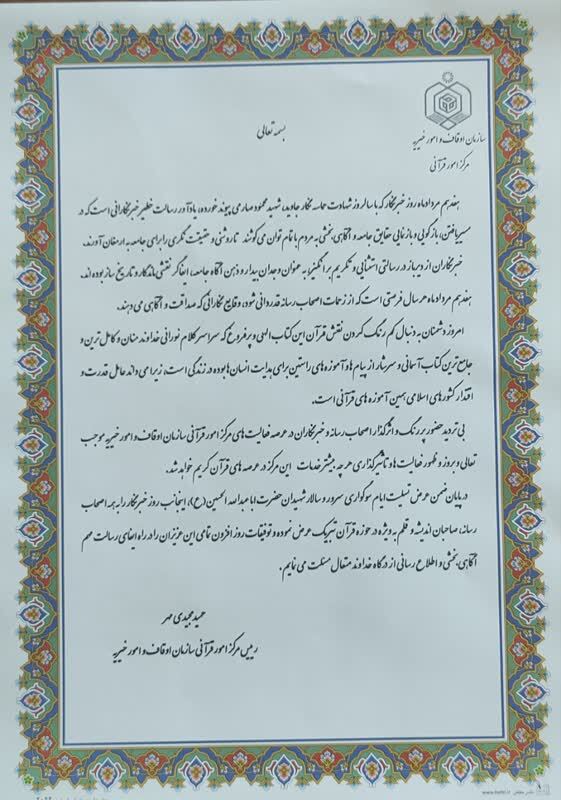 سازمان اوقاف و امور خیریه
مرکز امور قرآنی
بسمه تعالی
هفدهم مردادماه روز خبرنگار که با سالروز شهادت حماسه نگار جاوید، شهید محمود صارمی پیوند خورده، یادآور رسالت خطیر خبرنگارانی است که در
مسیر یافتن، بازگویی و بازنمایی حقایق جامعه و آگاهی بخشی به مردم با تمام توان می کوشند تا روشنی و حقیقت نگری را برای جامعه به ارمغان آورند.
خبرنگاران از دیرباز در رسالتی استثنایی و تکریم برانگیز، به عنوان وجدان بیدار و ذهن آگاه جامعه، ایفاگر نقشی ماندگار و تاریخ ساز بوده اند.
هفدهم مردادماه هر سال فرصتی است که از زحمات اصحاب رسانه قدردانی شود، وقایع نگارانی که صداقت و آگاهی می دهند.
امروز دشمنان به دنبال کم رنگ کردن نقش قرآن این کتاب الهی و پرفروغ که سراسر کلام نورانی خداوند منان و کامل ترین و
جامع ترین کتاب آسمانی و سرشار از پیام ها و آموزه های راستین برای هدایت انسان ها بوده در زندگی است، زیرا می داند عامل قدرت و
اقتدار کشورهای اسلامی همین آموزه های قرآنی است.
بی تردید حضور پررنگ و اثرگذار اصحاب رسانه و خبرنگاران در عرصه فعالیت های مرکز امور قرآنی سازمان اوقاف و امور خیریه موجب
تعالی و بروز و ظهور فعالیت ها و تاثیرگذاری هر چه بیشتر خدمات این مرکز در عرصه های قرآن کریم خواهد شد.
در پایان ضمن عرض تسلیت ایام سوگواری سرور و سالار شهیدان حضرت اباعبدالله الحسین (ع)، اینجانب روز خبرنگار را به همه اصحاب
رسانه، صاحبان اندیشه و قلم به ویژه در حوزه قرآن تبریک عرض نموده و توفیقات روزافزون تمامی این عزیزان را در راه ایفای رسالت مهم
آگاهی بخشی و اطلاع رسانی از درگاه خداوند متعال مسئلت می نمایم.
حمید مجیدی مهر
رییس مرکز امور قرآنی سازمان اوقاف و امور خیریه